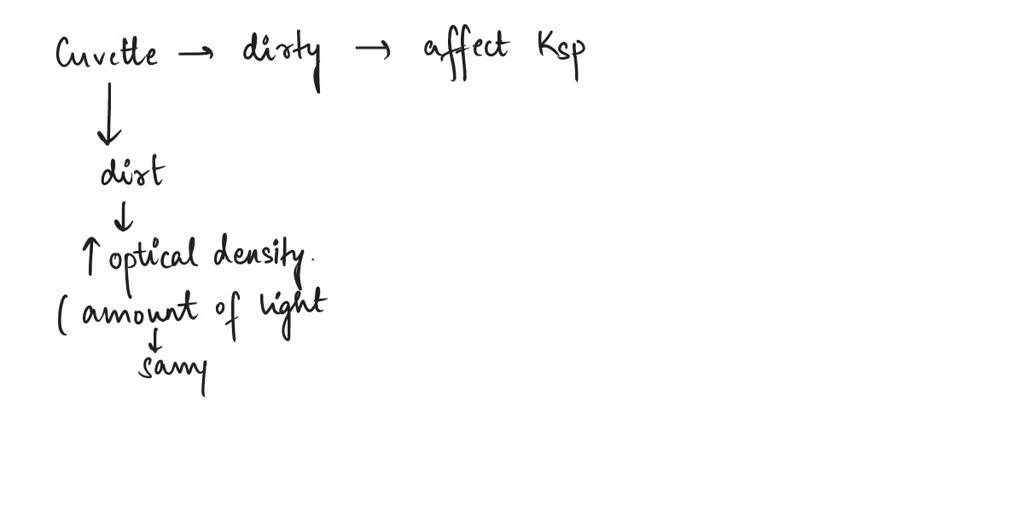 Cuvette → dirty → affect Ksp
↓
dirt
↓
↑ optical density.
( amount of light
↓
samp